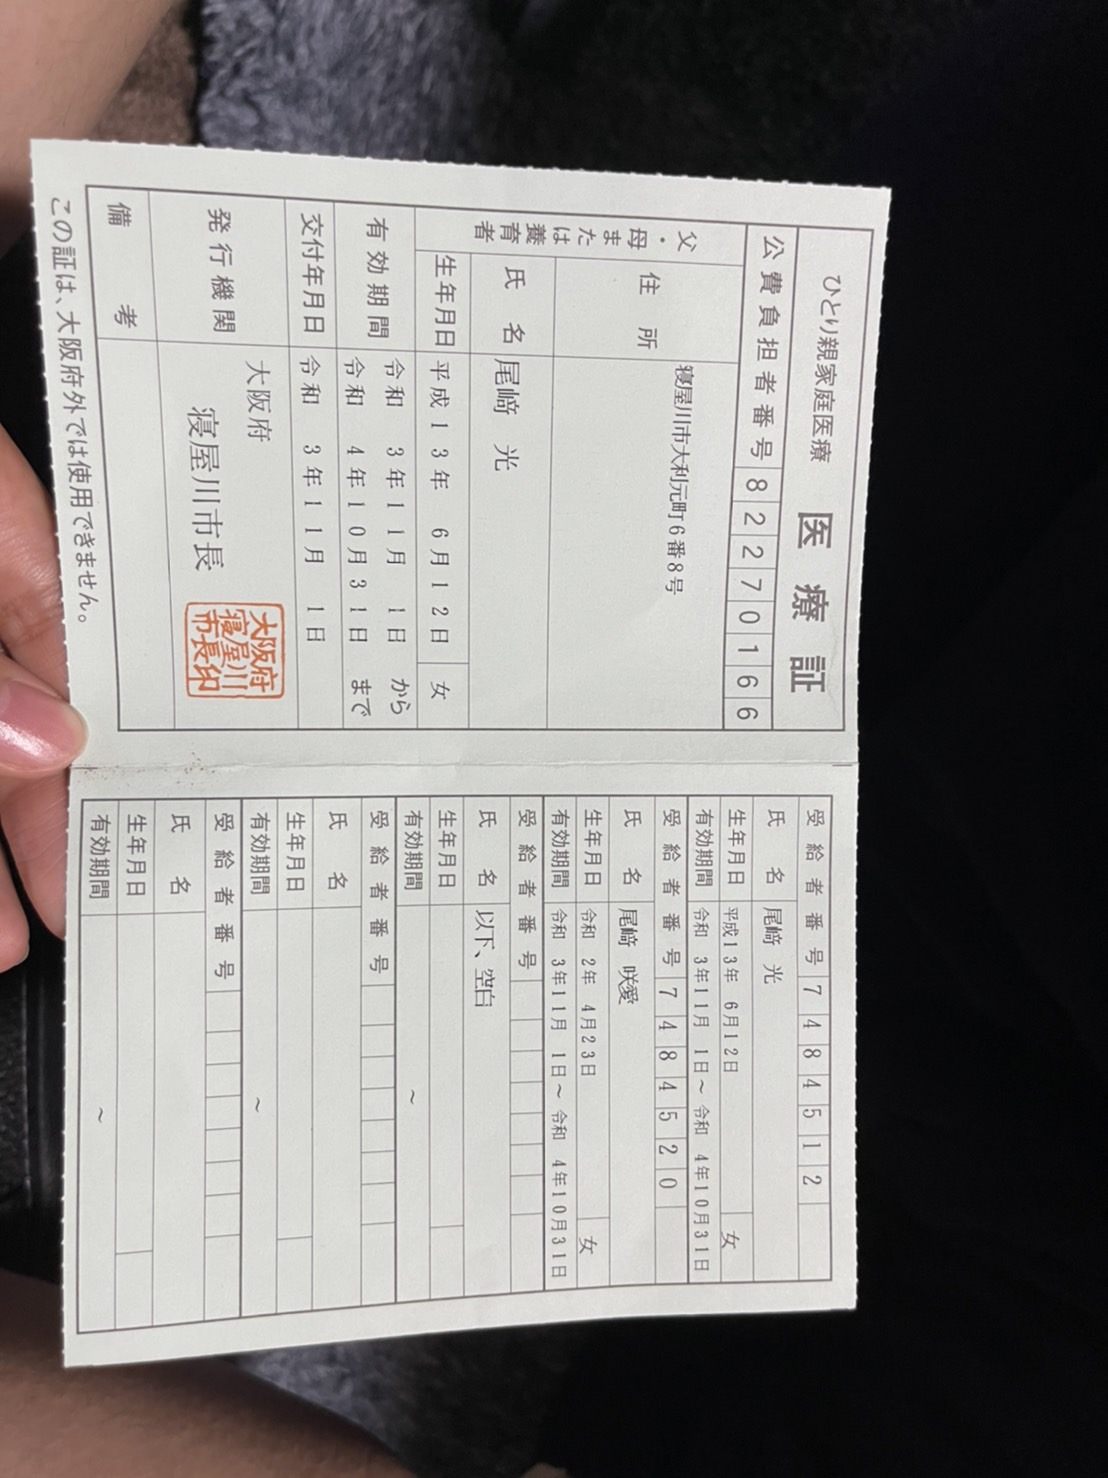 ひとり親家庭医療 医療証
公費負担者番号 82270166
父・母または養育者
住所 寝屋川市大利元町6番8号
氏名 尾﨑 光
生年月日 平成13年 6月12日 女
有効期間 令和 3年11月 1日 から
令和 4年10月31日 まで
交付年月日 令和 3年11月 1日
発行機関 大阪府
寝屋川市長
大阪府
寝屋川
市長印
備考
この証は、大阪府外では使用できません。
受給者番号 7484512
氏名 尾﨑 光
生年月日 平成13年 6月12日 女
有効期間 令和 3年11月 1日~令和 4年10月31日
受給者番号 7484520
氏名 尾﨑 咲愛
生年月日 令和 2年 4月23日 女
有効期間 令和 3年11月 1日~令和 4年10月31日
受給者番号
氏名 以下、空白
生年月日
有効期間 ~
受給者番号
氏名
生年月日
有効期間 ~
受給者番号
氏名
生年月日
有効期間 ~